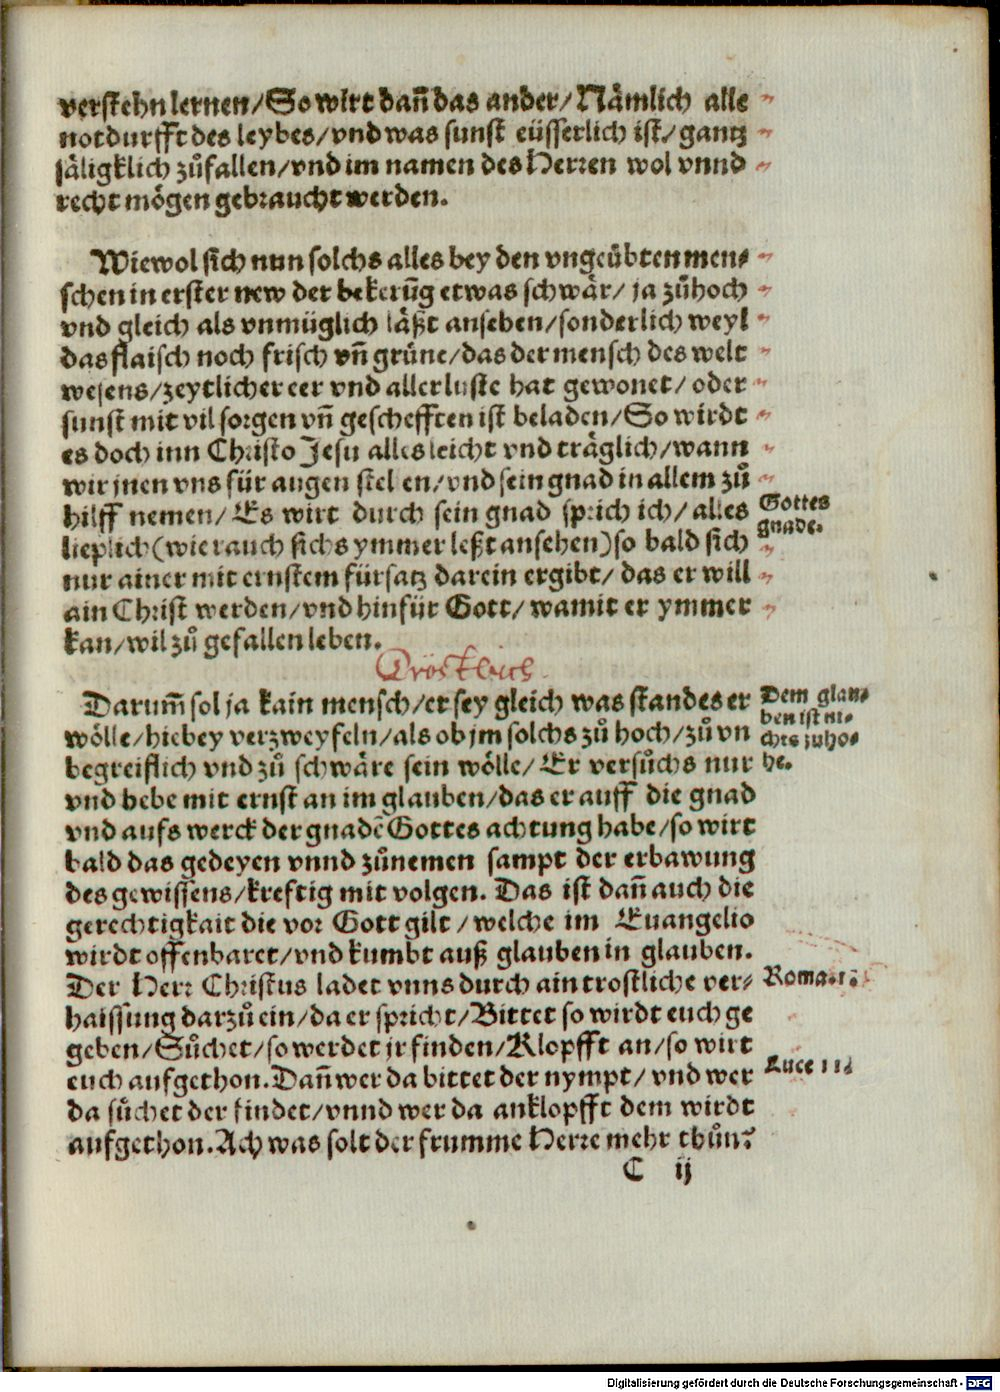 verstehn lernen/So wirt dañ das ander/Nämlich alle
notdurfft des leybes/vnd was sunst eüsserlich ist/gantz
säligklich zůfallen/vnd im namen des Herren wol vnnd
recht mögen gebraucht werden.
Wiewol sich nun solchs alles bey den vngeübten men⸗
schen in erster new der bekerũg etwas schwär/ ja zůhoch
vnd gleich als vnmüglich läßt ansehen/sonderlich weyl
das flaisch noch frisch vñ grüne/das der mensch des welt
wesens/zeytlicher eer vnd aller luste hat gewonet/ oder
sunst mit vil sorgen vñ geschefften ist beladen/So wirdt
es doch inn Christo Jesu alles leicht vnd träglich/wann
wir jnen vns für augen stel en/vnd sein gnad in allem zů
hilff nemen/ Es wirt durch sein gnad sprich ich/ alles
Gottes
gnade.
lieplich(wie rauch sichs ymmer leßt ansehen)so bald sich
nur ainer mit ernstem fürsatz darein ergibt/ das er will
ain Christ werden/vnd hinfür Gott/wamit er ymmer
kan/wil zů gefallen leben.
Tröstlich
Darum̃ sol ja kain mensch/er sey gleich was standes er
Dem glau⸗
ben ist ni⸗
chts zuho⸗
he.
wölle/hiebey verzweyfeln/als ob jm solchs zů hoch/zů vn
begreiflich vnd zů schwäre sein wölle/ Er versůchs nur
vnd hebe mit ernst an im glauben/das er auff die gnad
vnd aufs werck der gnadẽ Gottes achtung habe/so wirt
bald das gedeyen vnnd zůnemen sampt der erbawung
des gewissens/kreftig mit volgen. Das ist dañ auch die
gerechtigkait die vor Gott gilt/welche im Euangelio
wirdt offenbaret/vnd kumbt auß glauben in glauben.
Der Herr Christus ladet vnns durch ain trostliche ver⸗
Roma. 1.
haissung darzů ein/da er spricht/Bittet so wirdt euch ge
geben/Sůchet/so werdet jr finden/Klopfft an/so wirt
euch aufgethon. Dañ wer da bittet der nympt/ vnd wer
Luce 11
da sůchet der findet/vnnd wer da anklopfft dem wirdt
aufgethon. Ach was solt der frumme Herre mehr thůn?
C ij
Digitalisierung gefördert durch die Deutsche Forschungsgemeinschaft - DFG